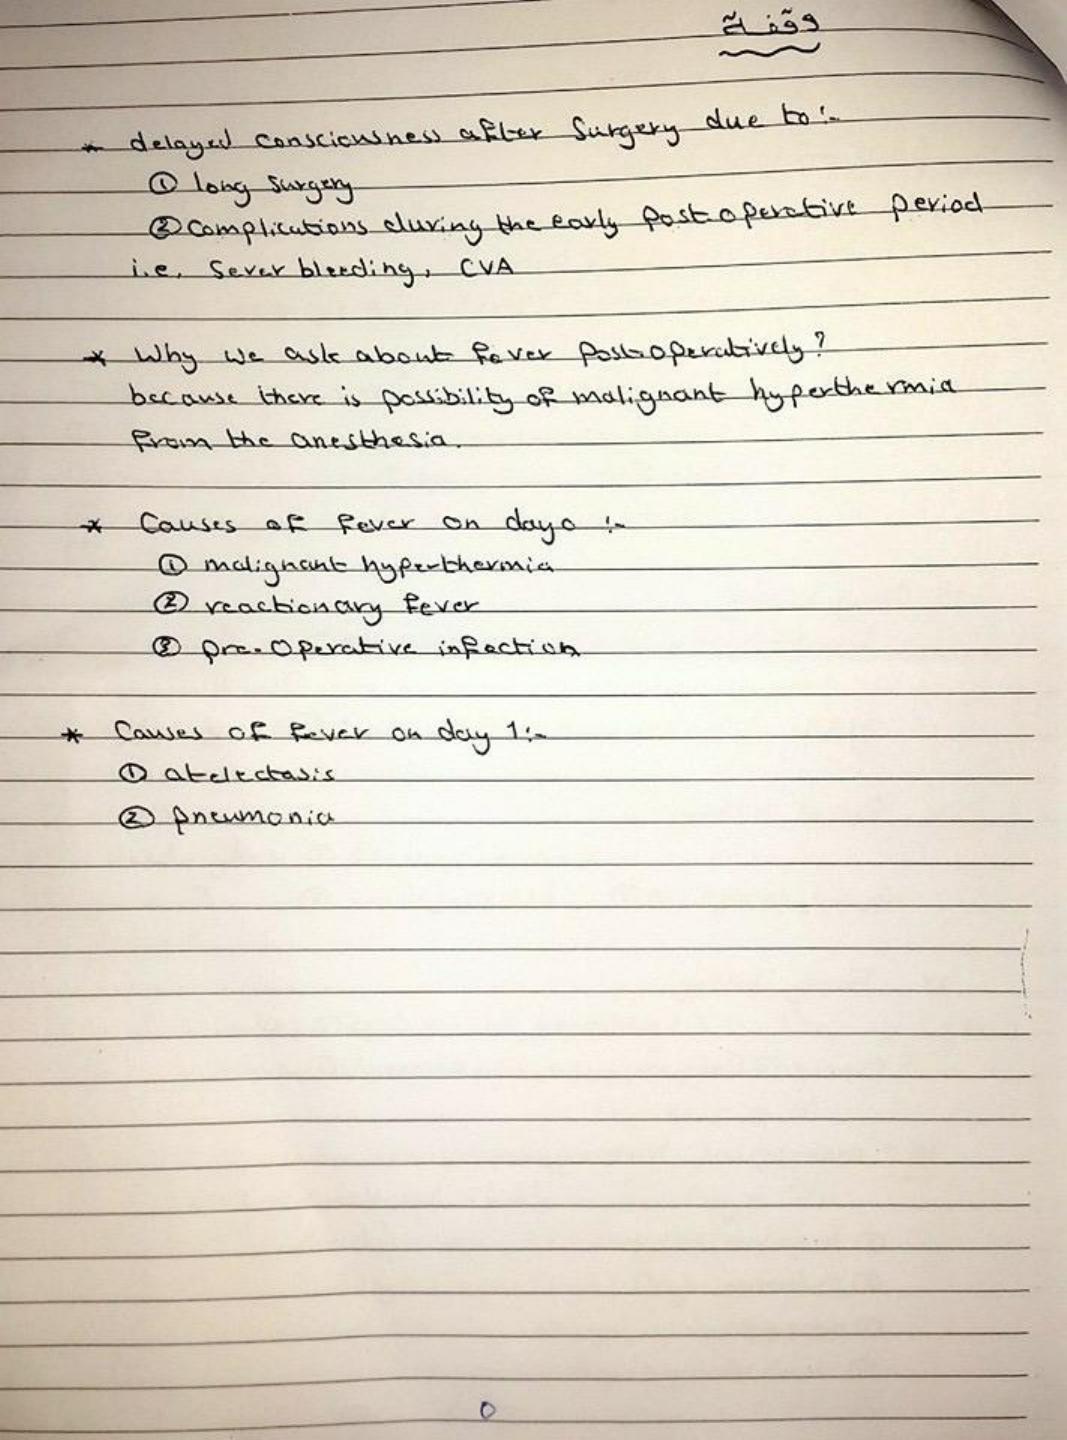 وقفة
* delayed consciousness after Surgery due to:-
① long surgery
② complications during the early postoperative period
i.e. Sever bleeding, CVA
* Why we ask about fever postoperatively?
because there is possibility of malignant hyperthermia
from the anesthesia.
* Causes of fever on day 0 :-
① malignant hyperthermia
② reactionary fever
③ pre-operative infection
* Causes of fever on day 1:-
① atelectasis
② pneumonia
٥